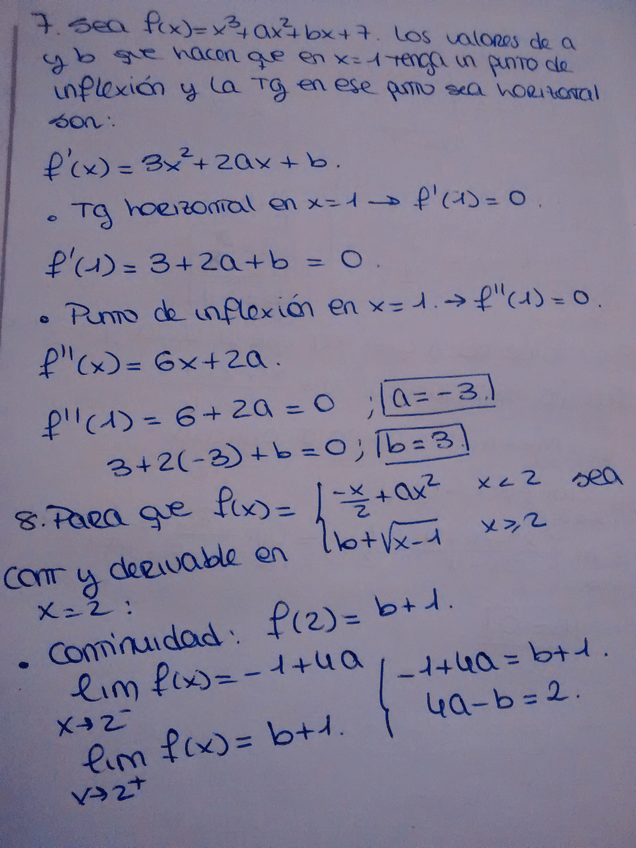 7. Sea f(x)=x³+ax²+bx+7. Los valores de a
y b que hacen que en x=1 tenga un punto de
inflexión y la Tg en ese punto sea horizontal
son:
f'(x)=3x²+2ax+b.
• Tg horizontal en x=1 → f'(1)=0.
f'(1)=3+2a+b=0.
• Punto de inflexión en x=1. → f''(1)=0.
f''(x)=6x+2a.
f''(1)=6+2a=0 ; a=-3.
3+2(-3)+b=0; b=3.
8. Para que f(x)= { -x/2+ax² x<2 sea
b+√x-1 x≥2
cont y derivable en
x=2:
• Continuidad: f(2)=b+1.
lim f(x)=-1+4a { -1+4a=b+1.
x→2⁻ 4a-b=2.
lim f(x)=b+1.
x→2⁺